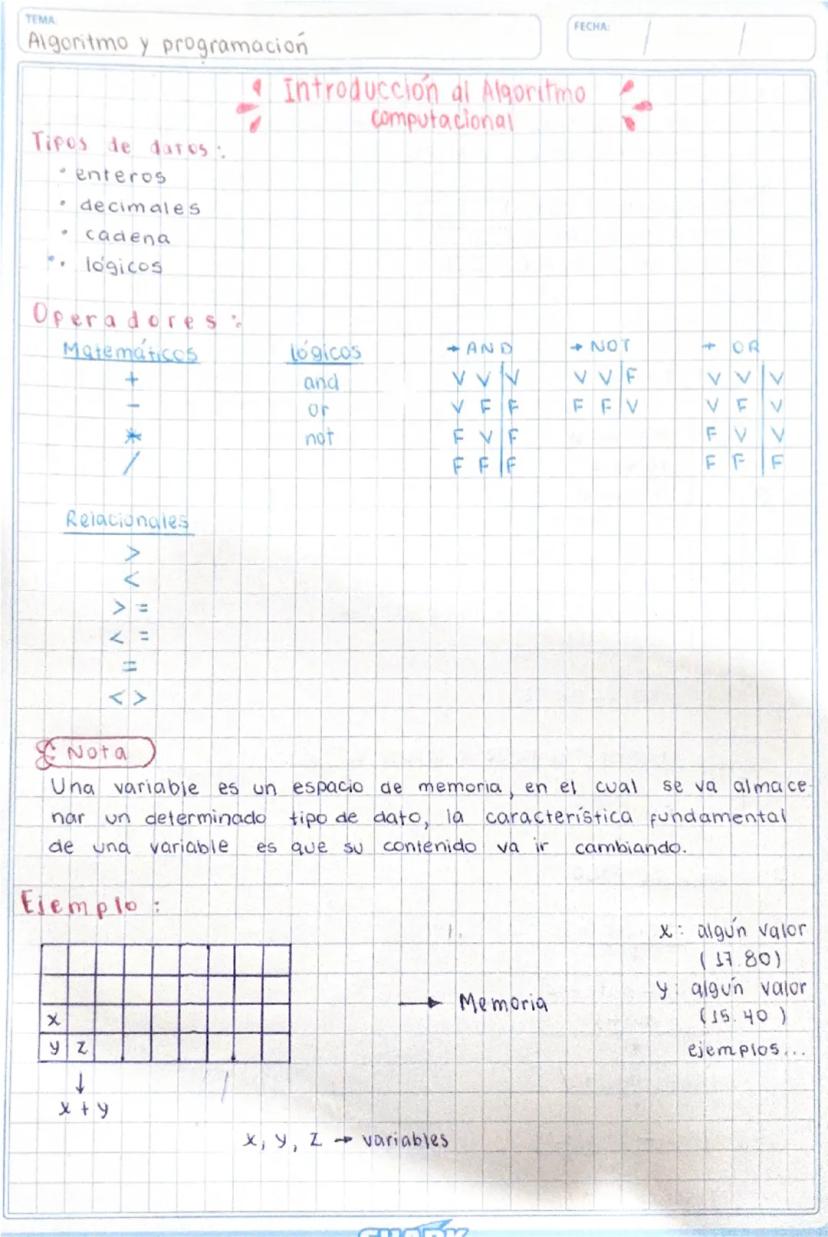 TEMA:
Algoritmo y programación
FECHA:
Introducción al Algoritmo
computacional
Tipos de datos:
• enteros
• decimales
• cadena
• lógicos
Operadores:
Matemáticos
+
-
*
/
lógicos
and
or
not
→ AND
V V | V
V F | F
F V | F
F F | F
→ NOT
V V | F
F F | V
→ OR
V V | V
V F | V
F V | V
F F | F
Relacionales
>
<
> =
< =
=
< >
Nota
Una variable es un espacio de memoria, en el cual se va almace
nar un determinado tipo de dato, la característica fundamental
de una variable es que su contenido va ir cambiando.
Ejemplo:
x
y z
↓
x + y
→ Memoria
x: algún valor
(17.80)
y: algún valor
(15.40)
ejemplos...
x, y, z → variables